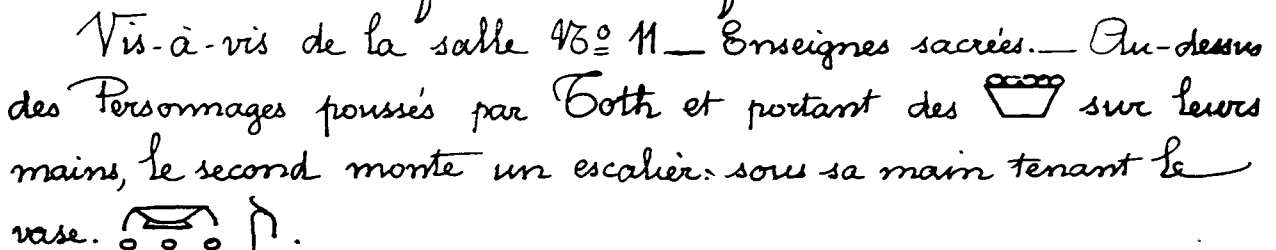 Vis-à-vis de la salle Nº 11 _ Enseignes sacrées. _ Au-dessus
des Personnages poussés par Toth et portant des sur leurs
mains, le second monte un escalier: sous sa main tenant le
vase.